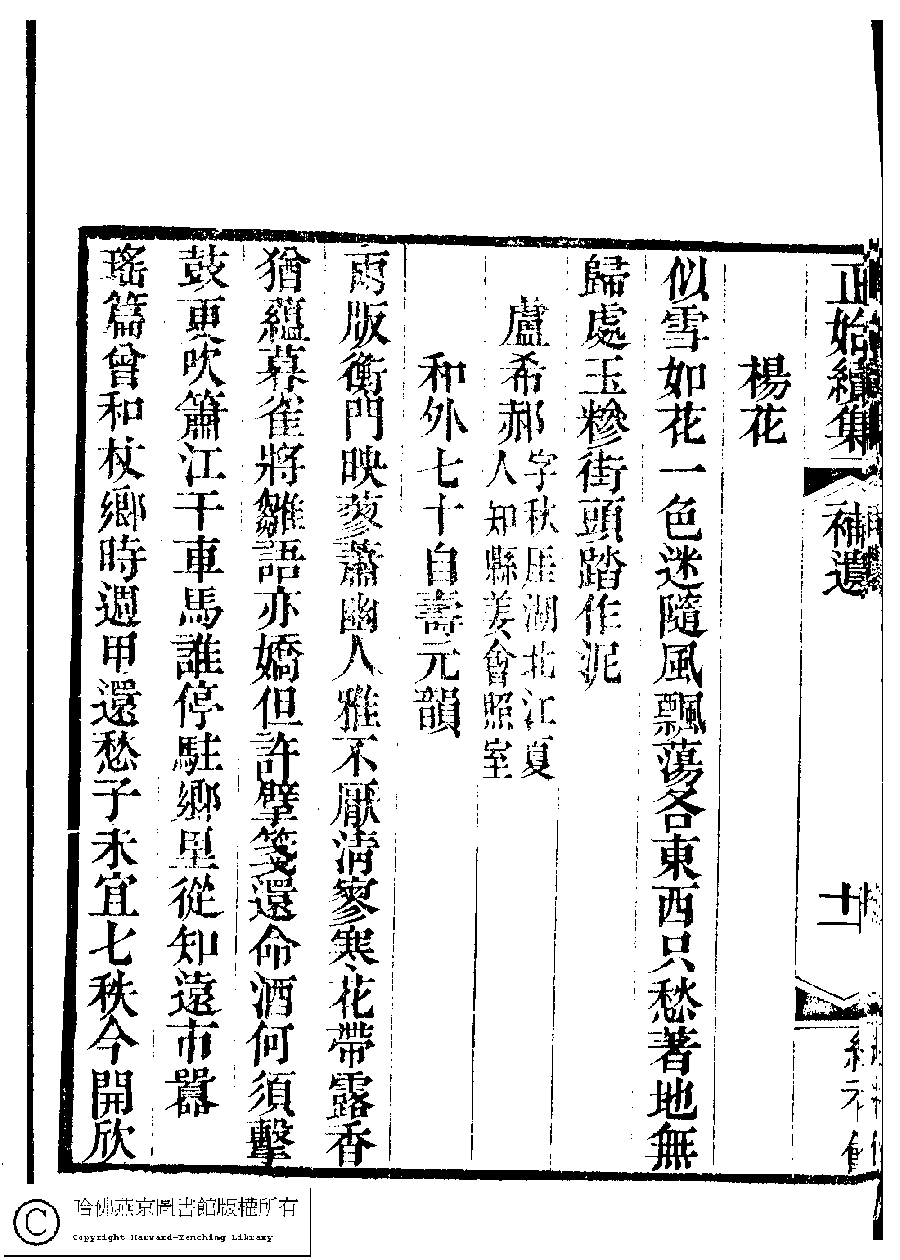 正始續集
補遺
十一
楊花
似雪如花一色迷隨風飄蕩各東西只愁著地無
歸處玉糝街頭踏作泥
盧希郝
字秋厓湖北江夏
人知縣姜會照室
和外七十自壽元韻
兩版衡門映蓼蕭幽人雅不厭清寥寒花帶露香
猶蘊暮雀將雛語亦嬌但許擘箋還命酒何須擊
鼓更吹簫江干車馬誰停駐鄉里從知遠市囂
瑤篇曾和杖鄉時週甲還愁子未宜七秩今開欣
哈佛燕京圖書館版權所有
Copyright Harvard-Yenching Library